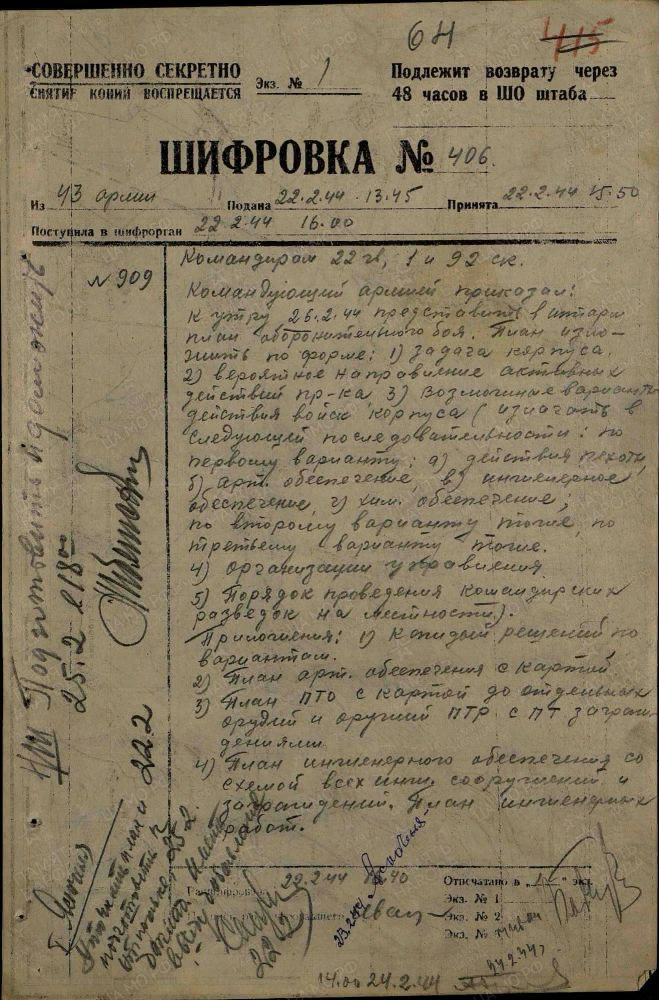 64
415
СОВЕРШЕННО СЕКРЕТНО
СНЯТИЕ КОПИЙ ВОСПРЕЩАЕТСЯ
Экз. № 1
Подлежит возврату через
48 часов в ШО штаба
ШИФРОВКА № 406
Из 43 армии Подана 22.2.44 13.45 Принята 22.2.44 15.50
Поступила в шифрорган 22.2.44 16.00
№ 909
Командирам 22 гв, 1 и 92 ск.
Командующий армией приказал:
К утру 26.2.44 представить в штарм
план оборонительного боя. План изло-
жить по форме: 1) задача корпуса.
2) вероятное направление активных
действий пр-ка 3) Возможные варианты
действия войск корпуса (излагать в
следующей последовательности: по
первому варианту: а) действия пехоты,
б) арт. обеспечение, в) инженерное
обеспечение, г) хим. обеспечение;
по второму варианту тоже, по
третьему варианту тоже.
4) организация управления
5) Порядок проведения командирских
разведок на местности).
Приложения: 1) К решений по
вариантам.
2) План арт. обеспечения с картой
3) План ПТО с картой до отдельных
орудий и оружий ПТР с ПТ заграж-
дениями
4) План инженерного обеспечения со
схемой всех инж. сооружений и
заграждений. План инженерных
работ.
НШ Подготовить и доложить
25.2 к 18 00
22.2
план и
подготовить
25.2
22.2
22.2.44 40
23.2.44
Отпечатано в „1" экз.
Экз. № 1
Экз. № 2
Экз. №
14.00 24.2.44